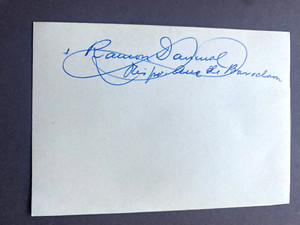 Ramon Daumal
Obispo Aux de Barcelona